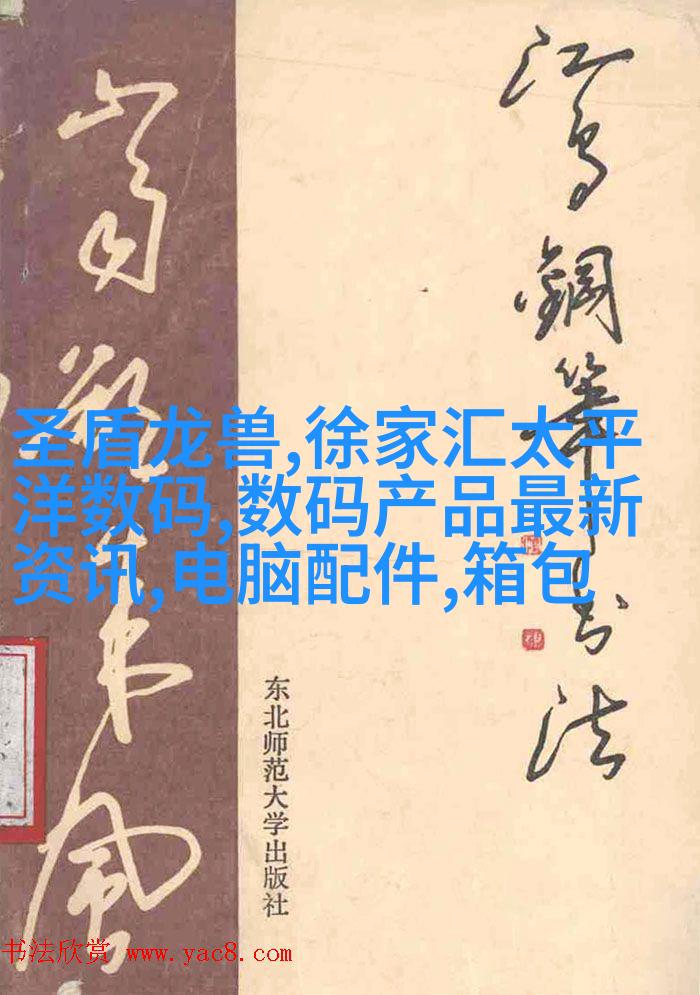 江鸟鋼筆书法
圣盾龙兽,徐家汇太平
洋数码,数码产品最新
资讯,电脑配件,箱包
东北师范大学出版社
書法欣赏 www.yac8.com